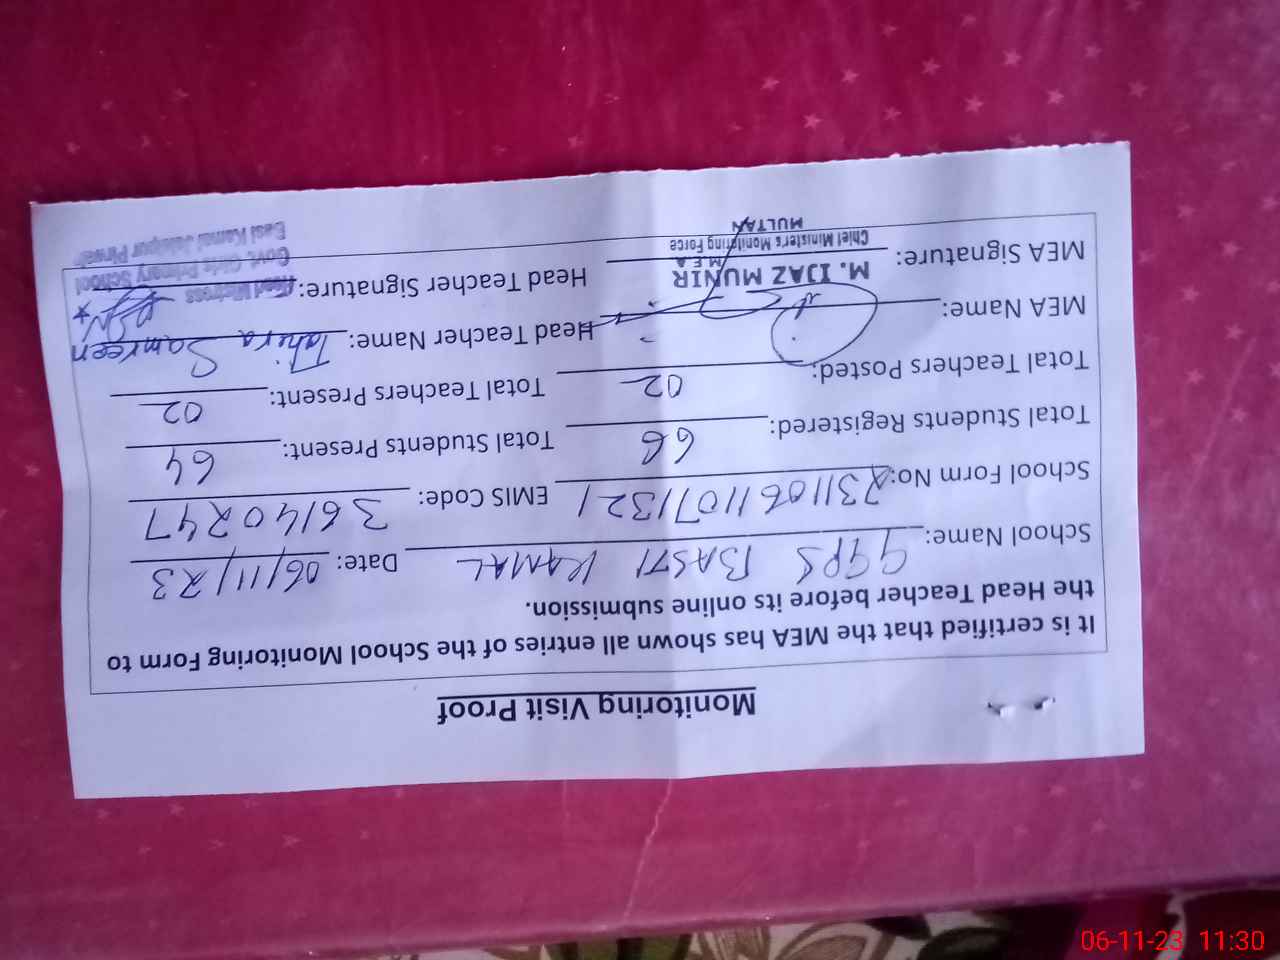 Monitoring Visit Proof
It is certified that the MEA has shown all entries of the School Monitoring Form to
the Head Teacher before its online submission.
School Name: GGPS BASTI KAMAL Date: 06/11/23
School Form No: 231106110711321 EMIS Code: 36140247
Total Students Registered: 66 Total Students Present: 64
Total Teachers Posted: 02 Total Teachers Present: 02
MEA Name: Head Teacher Name: Tahira Samreen
MEA Signature: Head Teacher Signature:
M. IJAZ MUNIR
M.E.A
Chief Minister's Monitoring Force
MULTAN
Head Mistress
Govt. Girls Primary School
Basti Kamal Jalalpur Pirwala
06-11-23 11:30